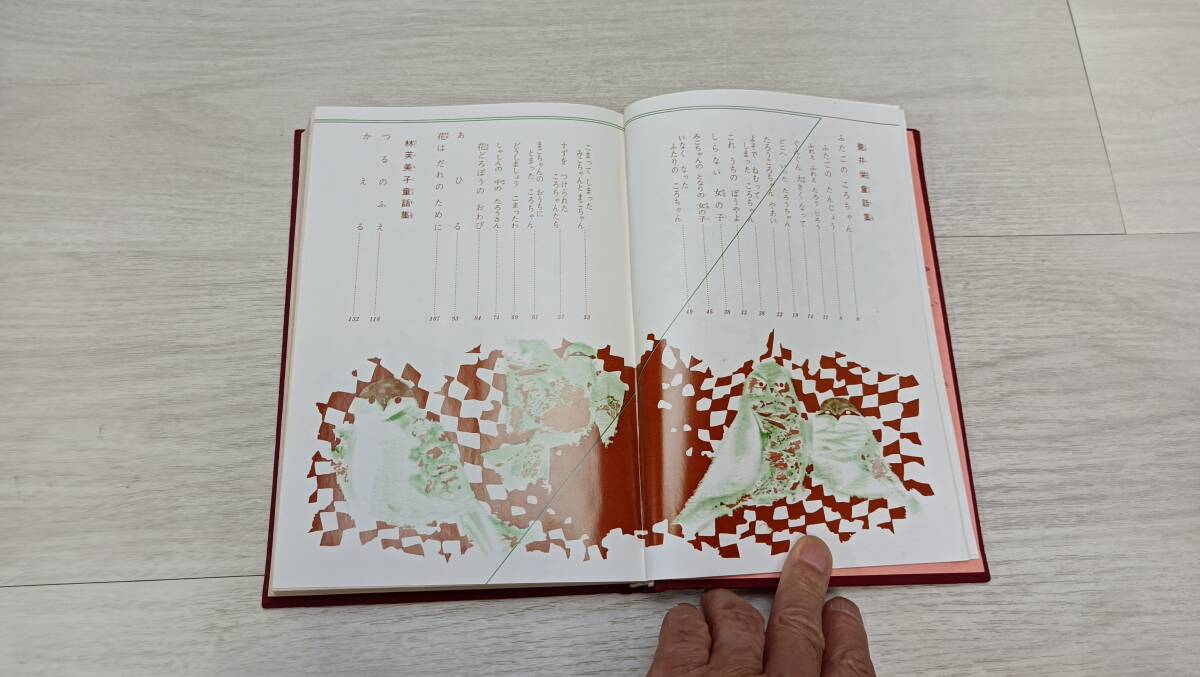 壺井栄童話集
ふたごの ころちゃん 8
ふたごの たんじょう 8
ふれえ ふれえ たろう じろう 11
ぐんぐん 大きく なって 14
どこへ いった たろうちゃん 18
たろうころちゃん やあい 23
よそで ねむって
しまった ころちゃん 26
これ うちの ぼうやよ
しらない 女の子 38
みこちゃんの となりの 女の子 45
いなく なった
ふたりの ころちゃん 49
こまって しまった
みこちゃんと まこちゃん 53
すずを つけられた
ころちゃんたち 57
まこちゃんの おうちに
とまった ころちゃん 61
どうしましょう こまったわ 69
しゃしんの 中の たろうさん 74
花どろぼうの おわび 84
あひる 93
花はだれのために 107
林芙美子童話集
つるのふえ 118
かえる 132